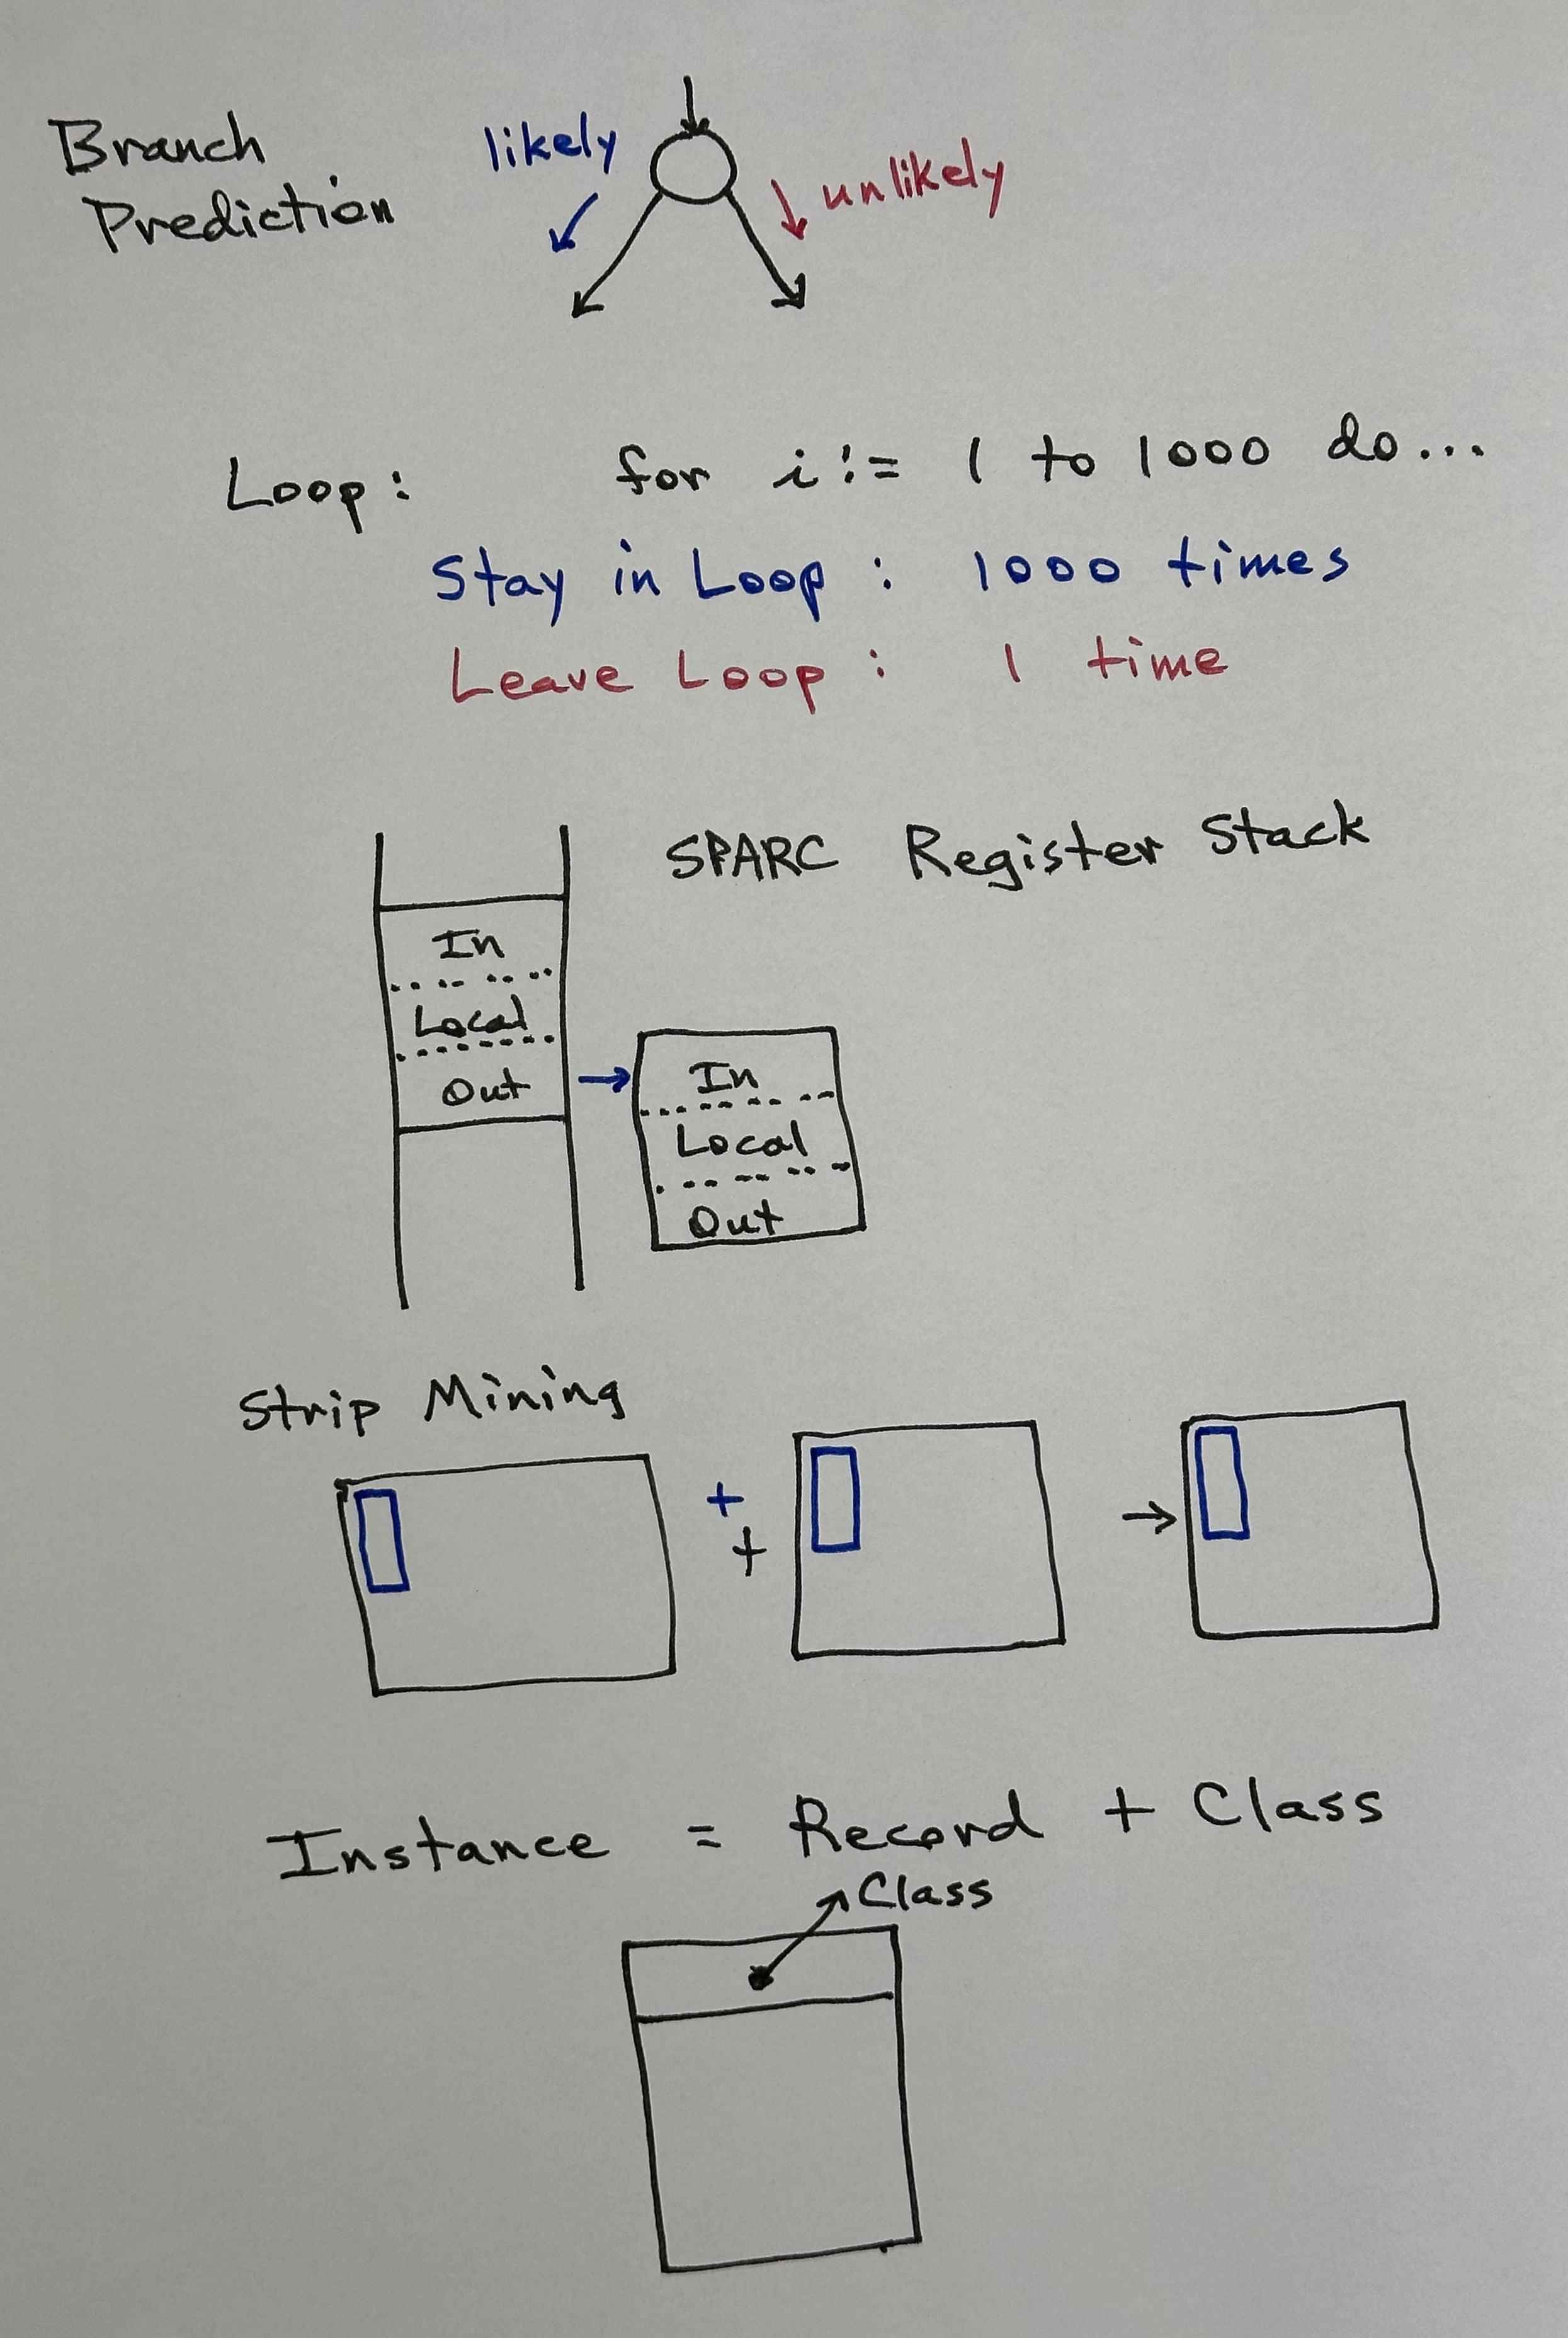 Branch
Prediction
likely
unlikely
Loop: for i := 1 to 1000 do...
Stay in Loop : 1000 times
Leave Loop : 1 time
SPARC Register Stack
In
Local
Out
In
Local
Out
Strip Mining
+
+
Instance = Record + Class
Class